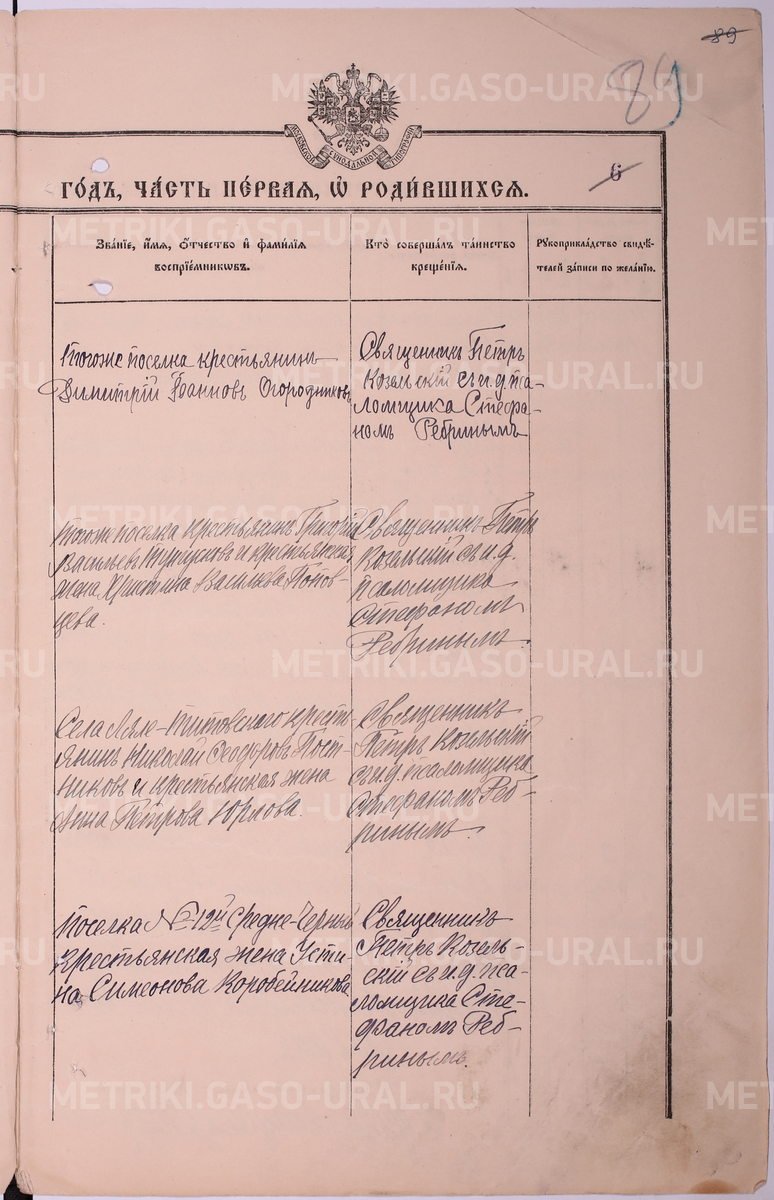 89
89
МОСКОВСКОЙ СѴНОДАЛЬНОЙ ТИПОГРАФІИ
6
ГО́ДЪ, ЧА́СТЬ ПЕ́РВАЯ, Ѡ҆ РОДИ́ВШИХСЯ.
Зва́нїе, и҆́мя, ѻ҆́тчество и҆ фами́лїя
воспрїе́мникѡвъ.
Кто̀ соверша́лъ та́инство
креще́нїя.
Рукоприкла́дство свидѣ́-
телей за́писи по жела́нїю.
Тогоже поселка крестьянинъ
Димитрій Іоанновъ Огородниковъ
Священникъ Петръ
Козельскій съ и. д. пса-
ломщика Стефа-
номъ Ребринымъ
Тогоже поселка крестьянинъ Григорій
Васильевъ и крестьянская
жена Христина Васильева Попов-
цева.
Священникъ Петръ
Козельскій съ и. д.
псаломщика
Стефаномъ
Ребринымъ.
Села Ляле-Титовского кресть-
янинъ Николай Ѳеодоровъ Пост-
никовъ и крестьянская жена
Анна Петрова Юрлова.
Священникъ
Петръ Козельскій
съ и. д. псаломщика
Стефаномъ Реб-
ринымъ.
Поселка № 12й Средне-Черный
крестьянская жена Усти-
на Симеонова Коробейникова
Священникъ
Петръ Козель-
скій съ и. д. пса-
ломщика Сте-
фаномъ Реб-
ринымъ.
METRIKI.GASO-URAL.RU